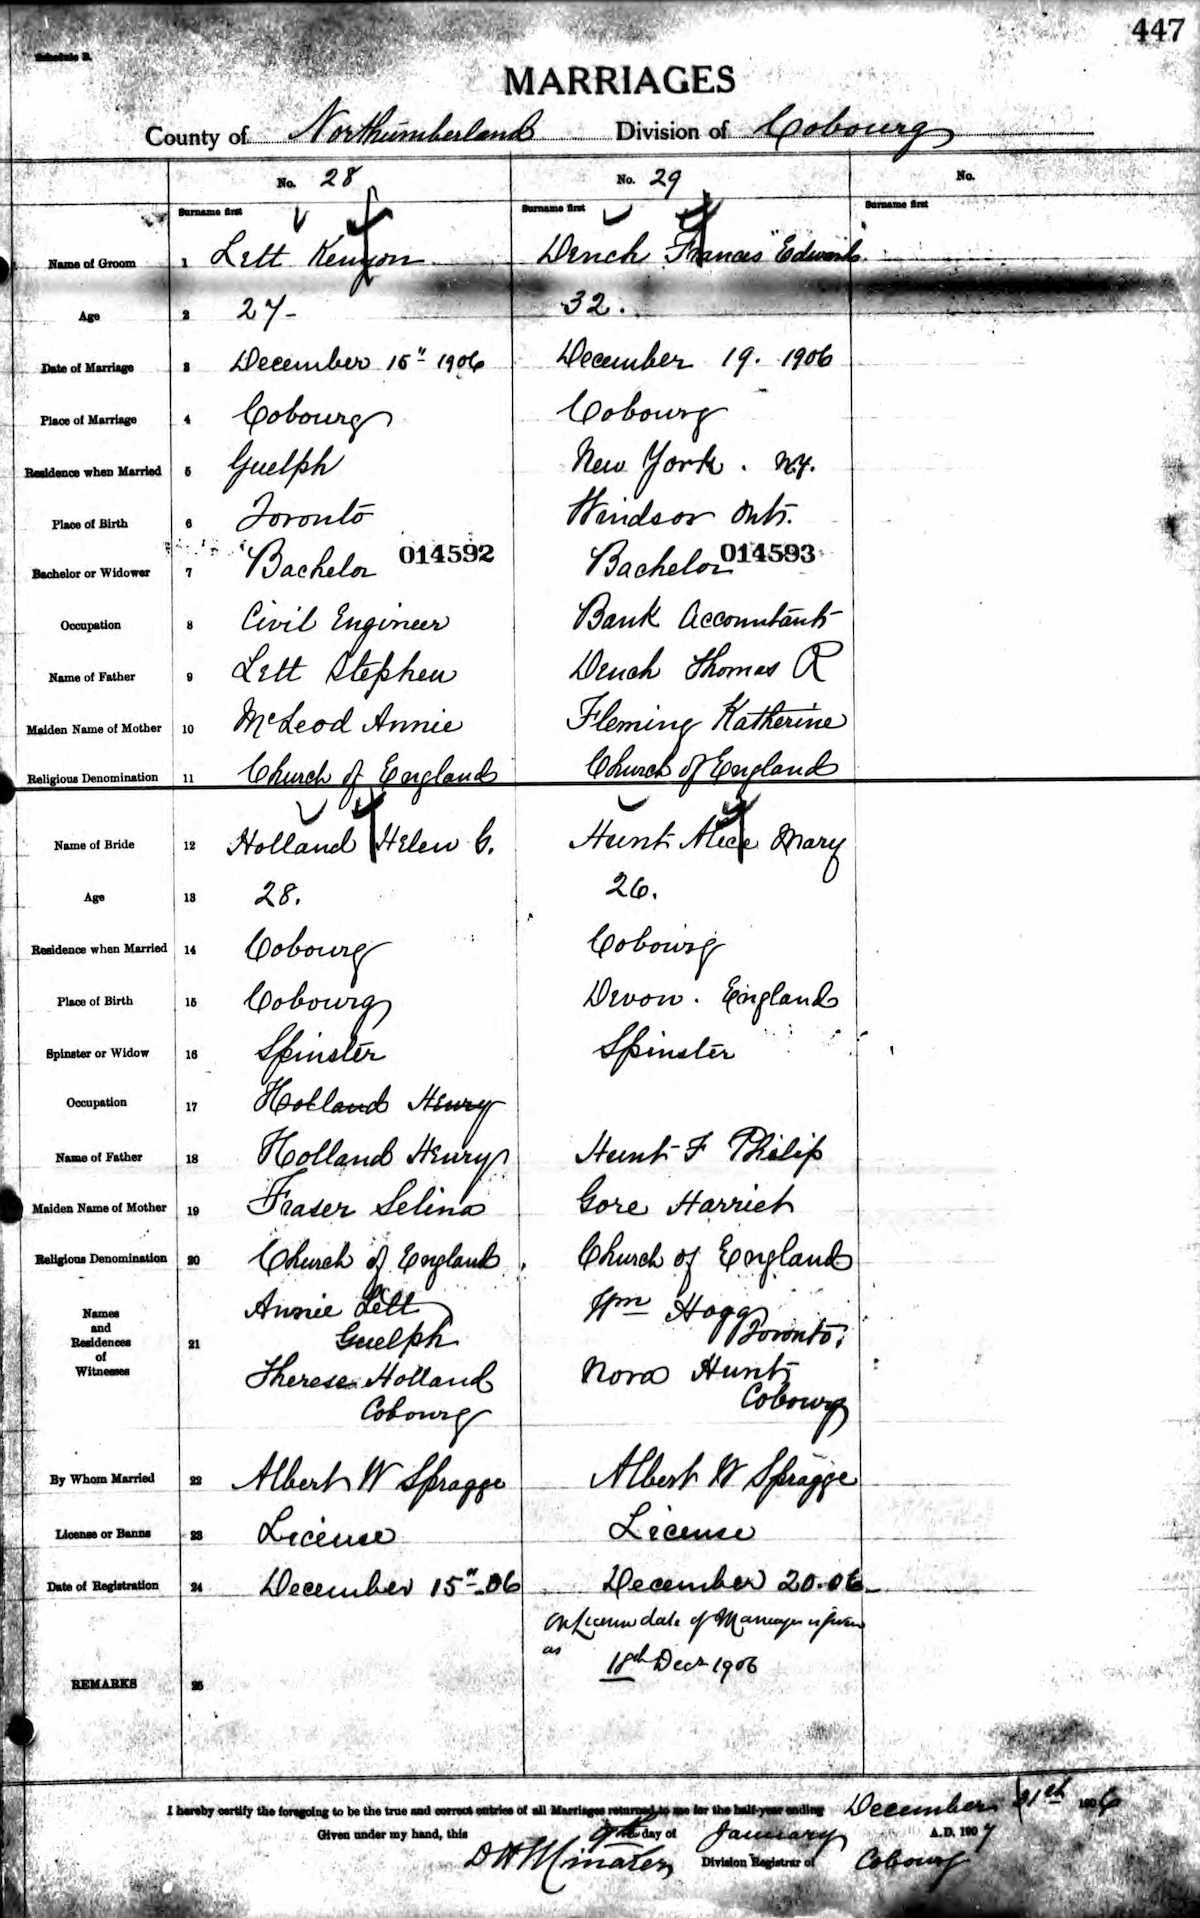 447
Schedule B.
MARRIAGES
County of Northumberland Division of Cobourg
No. 28 No. 29 No.
Surname first Surname first Surname first
Name of Groom 1 Lett Kenyon Dench Francis Edward
Age 2 27- 32.
Date of Marriage 3 December 15" 1906 December 19. 1906
Place of Marriage 4 Cobourg Cobourg
Residence when Married 5 Guelph New York. N.Y.
Place of Birth 6 Toronto Windsor Ont.
014592 014593
Bachelor or Widower 7 Bachelor Bachelor
Occupation 8 Civil Engineer Bank Accountant
Name of Father 9 Lett Stephen Dench Thomas R
Maiden Name of Mother 10 McLeod Annie Fleming Katherine
Religious Denomination 11 Church of England Church of England
Name of Bride 12 Holland Helen G. Hunt Alice Mary
Age 13 28. 26.
Residence when Married 14 Cobourg Cobourg
Place of Birth 15 Cobourg Devon. England
Spinster or Widow 16 Spinster Spinster
Occupation 17 Holland Henry
Name of Father 18 Holland Henry Hunt F Philip
Maiden Name of Mother 19 Fraser Selina Gore Harriet
Religious Denomination 20 Church of England Church of England
Names and Residences of Witnesses 21 Annie Lett Wm Hogg
Guelph Toronto.
Therese Holland Nora Hunt
Cobourg Cobourg
By Whom Married 22 Albert W Spragge Albert W Spragge
License or Banns 23 License License
Date of Registration 24 December 15"-06 December 20.06
On License date of Marriage is given
as
18th Decr 1906
REMARKS 25
I hereby certify the foregoing to be the true and correct entries of all Marriages returned to me for the half-year ending December 31st 1906
Given under my hand, this 9th day of January A.D. 1907
Division Registrar of Cobourg